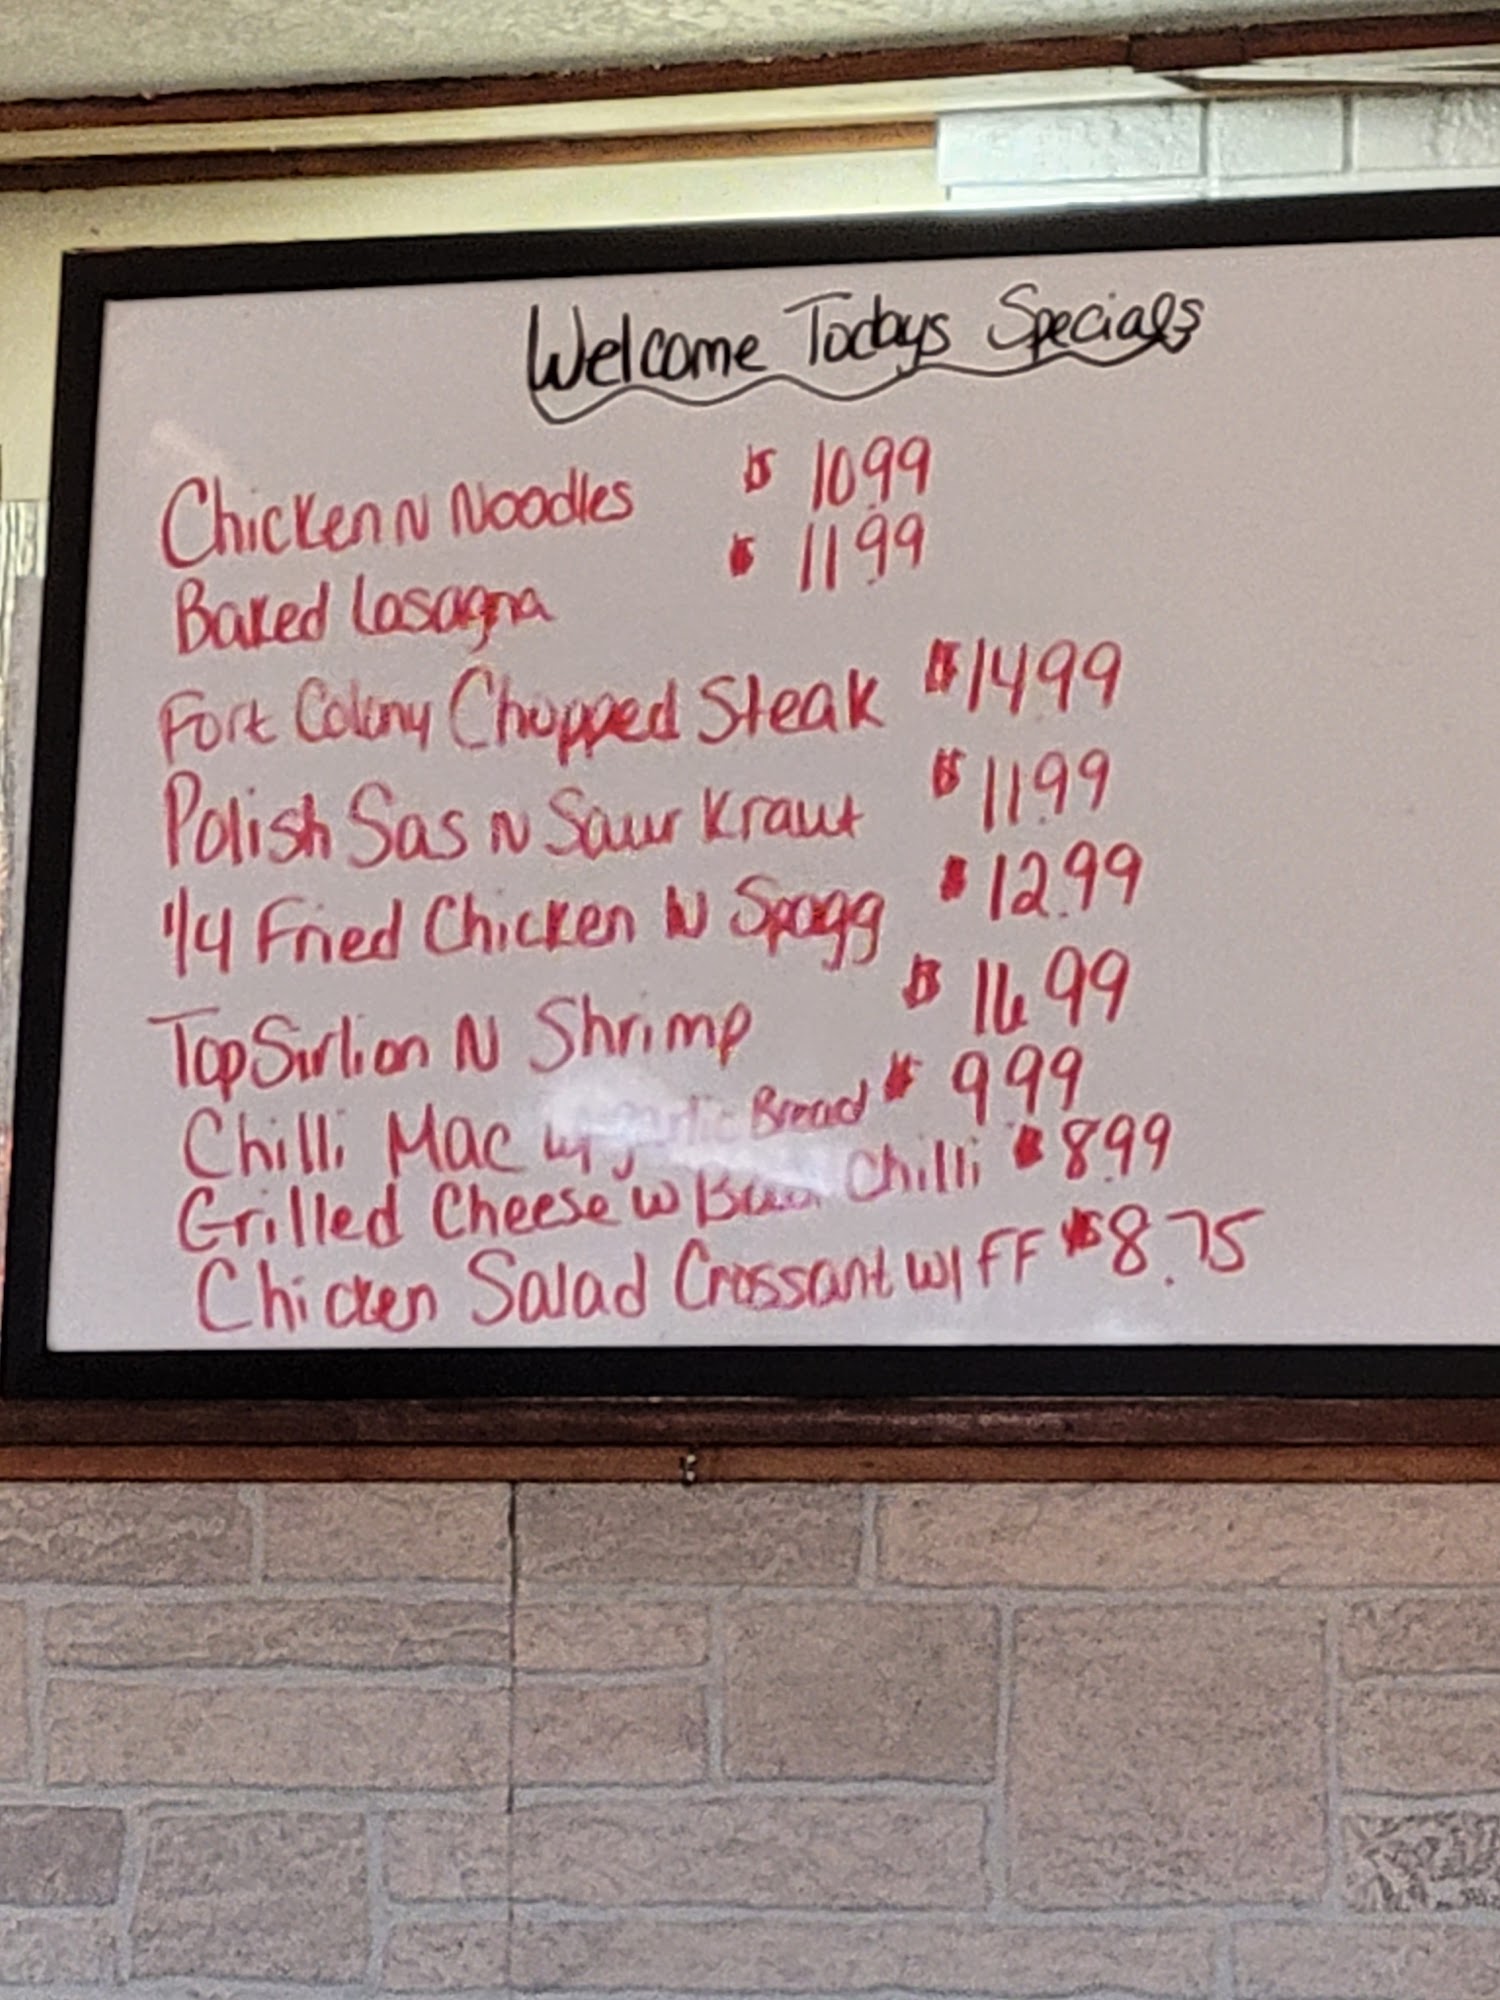 Welcome Todays Specials
Chicken N Noodles $ 10.99
Baked Lasagna $ 11.99
Fort Colony Chopped Steak $14.99
Polish Sas N Saur Kraut $11.99
1/4 Fried Chicken N Spagg $12.99
Top Sirlion N Shrimp $ 16.99
Chilli Mac w/ garlic Bread $ 9.99
Grilled Cheese w Bowl Chilli $8.99
Chicken Salad Crossant w/ FF $8.75